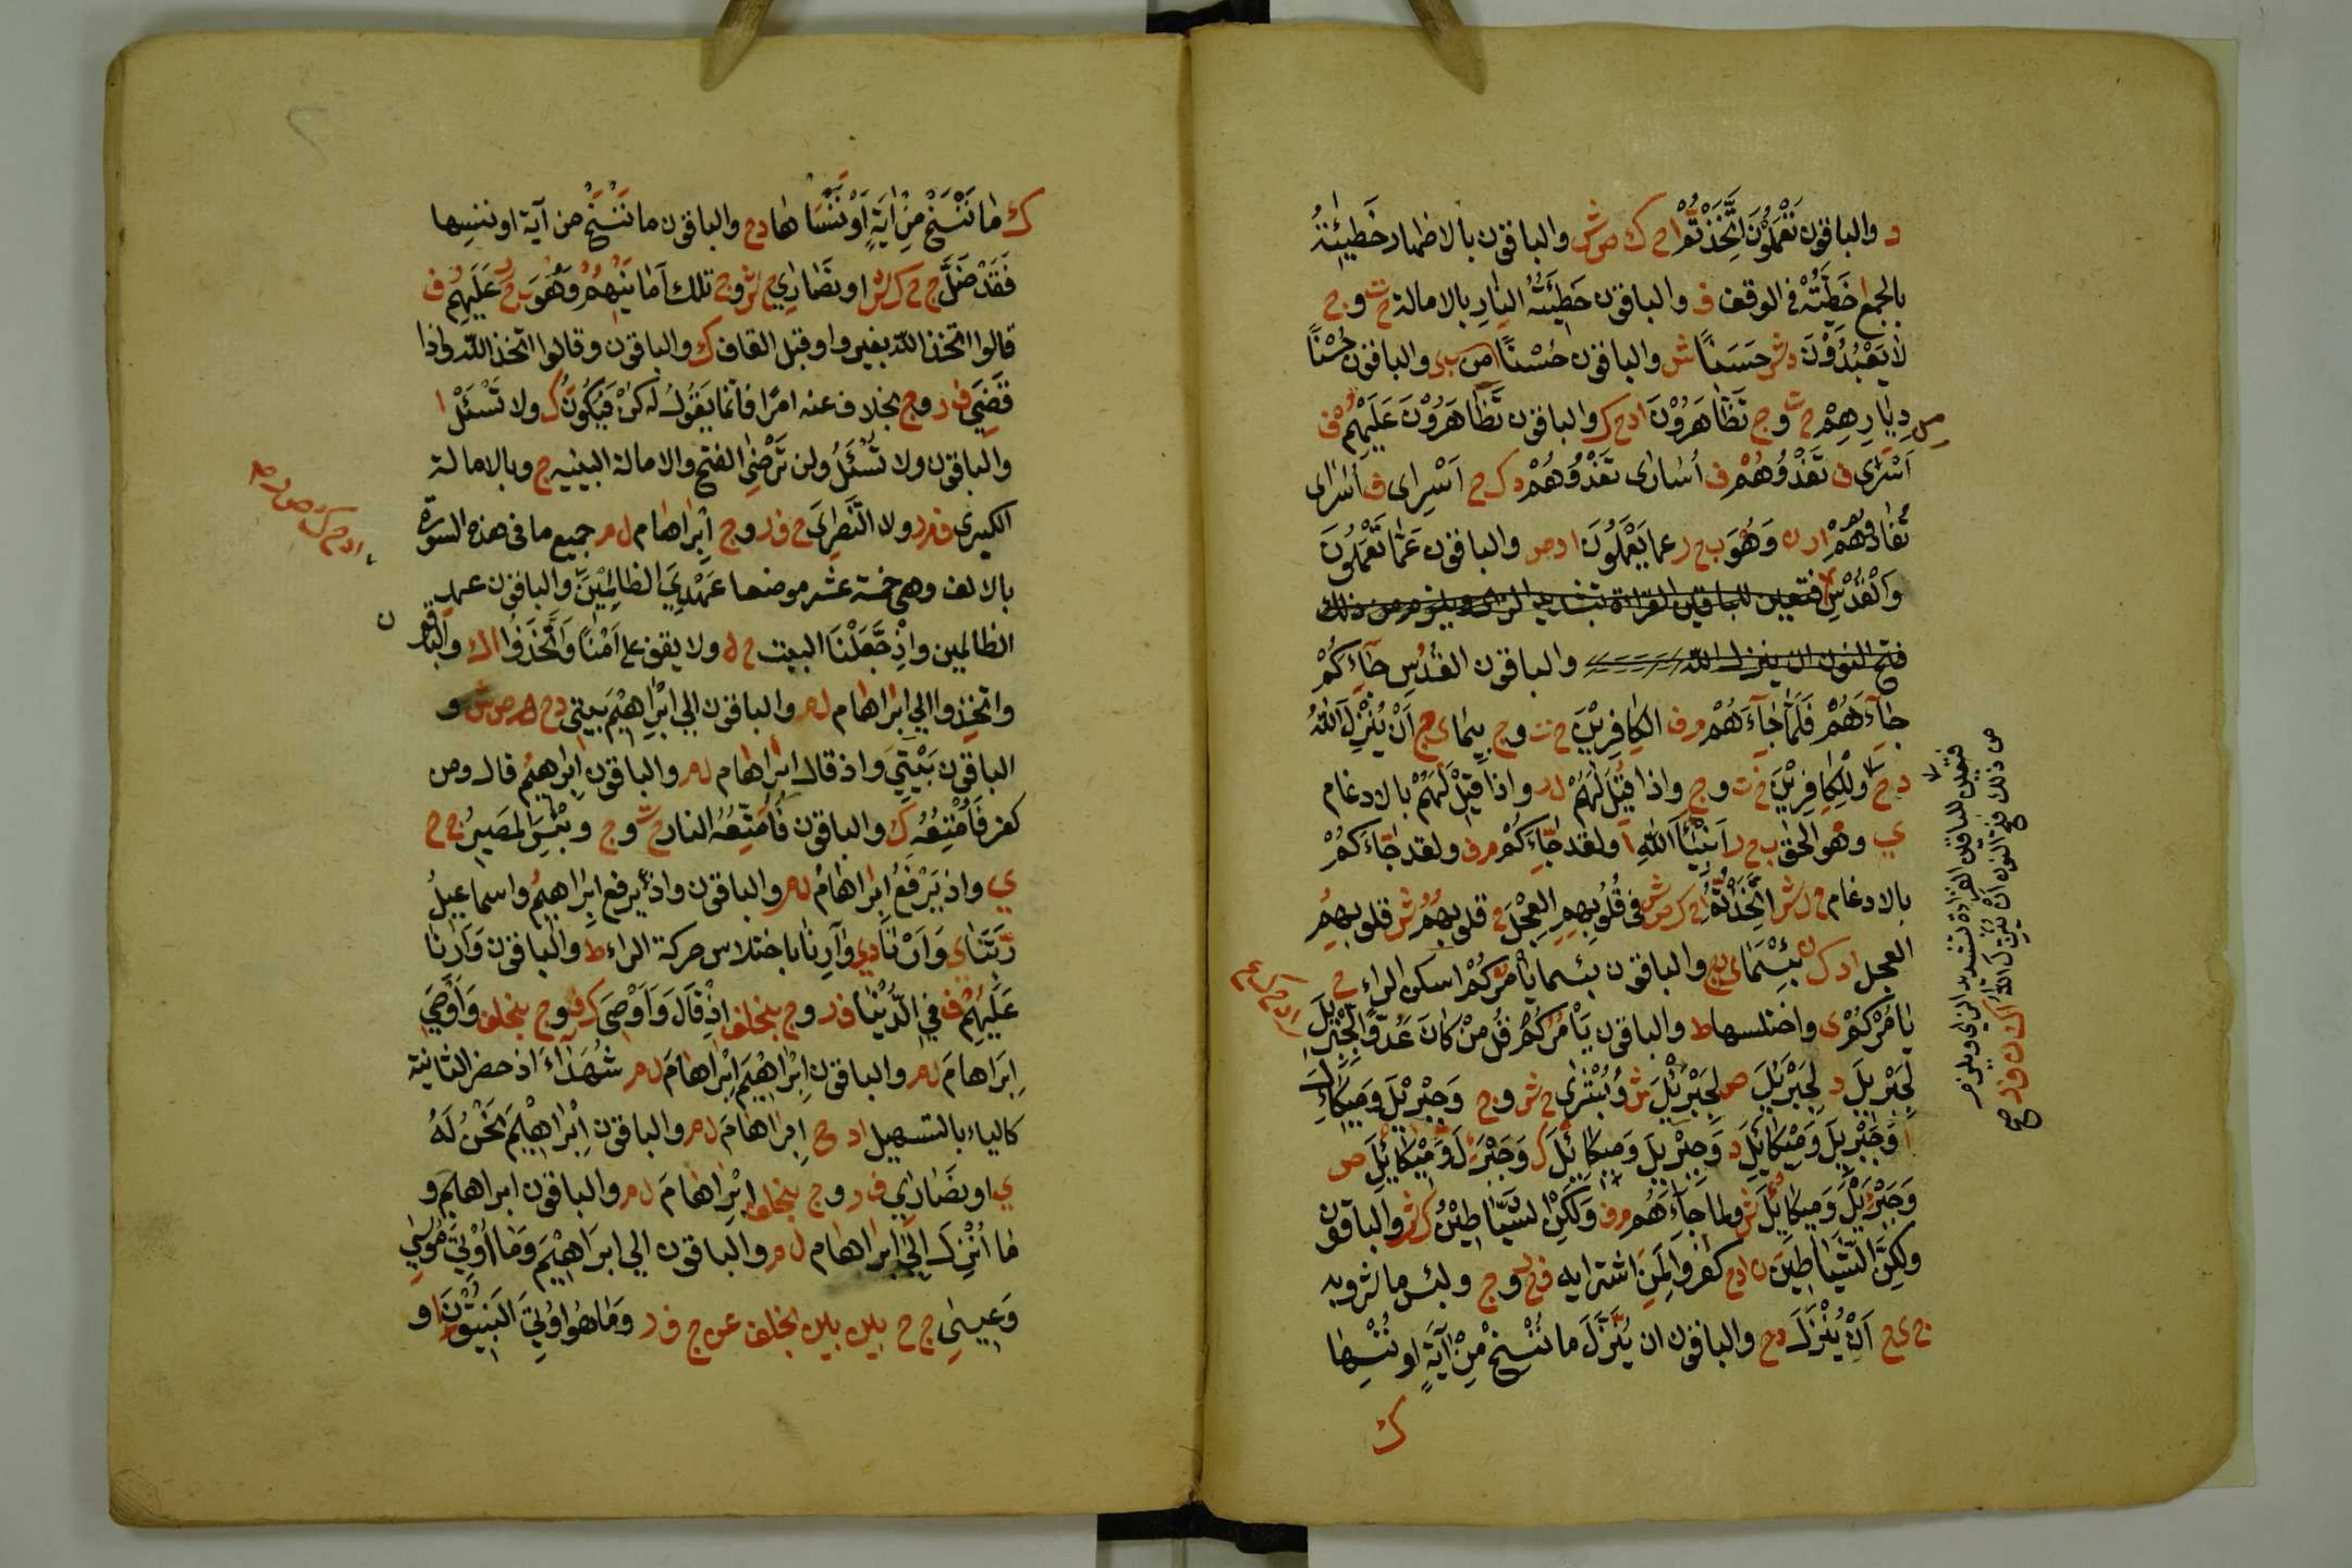 د والباقون تَعْمَلُونَ اتَّخَذْتُمْ ا ح ك ص ش والباقون بالاظهار خَطِيئَتُهُ
بالجمع ا خَطِيَّتُهُ في الوقف ف والباقون خَطِيئَتُهُ النَّارِ بالامالة ح ت و ج
لَا يَعْبُدُوْنَ د ش حَسَنًا ش والباقون حُسْنًا والباقون حُسْنًا
دِيَارِهِمْ ح ت و ج تَظَّاهَرُوْنَ ا د ح ك والباقون تَظَاهَرُوْنَ عَلَيْهُمْ ف
اَسْرٰى ف تَفْدُوْهُمْ ف اُسَارى تَفْدُوْهُمْ د ك ح اَسْرِى ف اُسَارى
تُفَادُوهُمْ ا ر ن وَهْوَ ب ح ر عما يَعْمَلُونَ ا د ص والباقون عَمَّا تَعْمَلُونَ
وَالْقُدْسِ فتعين للباقين القراءة بتشديد الزاى ويلزم من ذلك
فتح النون ان ينزل الله والباقون القُدُسِ جَآءَكُمْ
جَآءَهُمْ فَلَمَّا جَآءَهُمْ م ف الكَافِرِيْنَ ح ت و ج بِيمَا ى ج اَنْ يُنْزِلَ اللهُ
د ح وَلِلْكَافِرِيْنَ ح ت و ج واذا قِيْلَ لَهُمْ ل ر واذا قِيْلَ لَهُمْ بالادغام
ي وهْو الحق ب ح ر اَنْبِيَآءَ اللهِ ا ولقد جَآءَكُمْ م ف ولقد جَّاءَكُمْ
بالادغام ح ل ش اتَّخَذْتُمُ ا ح ك ص ش فى قُلُوبِهِمِ العِجْلَ ح قلوبهُمُ ش قلوبهِمُ
العجل ا د ك ن بِئْسَمَا ى ج والباقون بئسما يَأْمُرْكُمْ اسكن الراء ح
يَامُرْكُمْ ى واختلسها ط والباقون يَأْمُرُكُمْ قُلْ مَنْ كَانَ عَدُوًّا لِجِبْرِيلَ
لِجَبْرِيلَ د لِجَبْرَئِلَ ص لِجَبْرَئِيْلَ ش وَبُشْرَى ح ش و ج وَجِبْرِيْلَ وَمِيكَائِلَ
ا وَجَبْرِيلَ وَمِيْكَائِيْلَ د وَجِبْرِيلَ وَمِيكَائِيْلَ ك وَجَبْرَئِلَ وَمِيْكَائِيْلَ ص
وَجَبْرَئِيْلَ وَمِيكَائِيْلَ ش ولما جَآءَهُمْ م ف وَلٰكِنِ الشَّيَاطِيْنُ ك ش والباقون
ولكِنَّ الشَّيَاطِيْنَ ن ا د ح كفروا لَمَنِ اشتريه ف ح ر و ج ولبئس ما شروا به
ج ى ح اَنْ يُنْزَلَ د ح والباقون ان يُنَزَّلَ ما نُنْسِخْ مِنْ آيَةٍ او نُنْسِهَا
ك
فتعين للباقين القراءة بتشديد الزاى ويلزم
من ذلك فتح النون اَنْ يُنَزِّلَ اللهُ ا ك ن ف ر صح
ك مَا نَنْسَخْ مِنْ آيَةٍ اَوْ نَنْسَاهَا د ح والباقون ما نَنْسَخْ من آية او ننسها
فَقَدْ ضَلَّ ج ح ك ش او نَصَارِى ح ش و ج تلك اَمَانِيُّهُمْ وَهْوَ ب ح ر عَلَيْهُمْ ف
قالوا اتخذ الله بغير واو قبل القاف ك والباقون وقالوا اتخذ الله واذا
قَضَى ف ر و ج بخلاف عنه امرًا فانما يَقُولُ لَهُ كُنْ فَيَكُونَ ك ولا تَسْئَلْ ا
والباقون ولا تُسْئَلُ ولن تَرْضٰى الفتح والامالة البينيه ج وبالامالة
الكبرى ف ر ولا النَّصٰرٰى ح ف ر و ج اِبْرَاهَام ل م جميع ما فى هذه السورة
بالالف وهى خمسة عشر موضعا عَهْدِيَ الظالِمِيْنَ والباقون عهدِ
الظالمين وَاِذْ جَّعَلْنَا البيت ح ل ولا يقف على اَمْنًا وَاتَّخَذُوا ا ك والباقون
واتخِذوا الى ابراهام ل م والباقون الى اِبْرَاهِيْمَ بَيْتِي د ح م ص ش و
الباقون بَيْتِيَ واذ قال ابراهام ل م والباقون ابراهيمُ قال ومن
كفر فَاُمْتِعُهُ ك والباقون فَاُمَتِّعُهُ النار ح ت و ج وَبِيْسَ المَصِيرُ ج ح
ي واذ يَرْفَعُ ابراهَامُ ل م والباقون واذ يرفع ابراهيمُ واسماعيلُ
رَّبَّنَا ي وَاَرْنَا د ي وَاَرِنَا باختلاس حركة الراء ط والباقون وَاَرِنَا
عَلَيْهُمْ ف فِي الدُّنْيَا ف ر و ج بخلف اِذْ قَالَ وَاَوْصَى ك ف و ج بخلف وَاَوْصَى
اِبْرَاهَامَ ل م والباقون اِبْرَاهِيْمَ اِبْرَاهَامَ ل م شُهَدَاءَ اذ حضر الثانية
كالياء بالتسهيل ا د ح اِبْرَاهَامَ ل م والباقون اِبْرَاهِيْمَ نَحْنُ لَهُ
ي او نَصَارٰى ف ر و ج بخلف اِبْرَاهَامَ ل م والباقون ابراهيم و
مَا اُنْزِلَ اِلى ابراهام ل م والباقون الى ابراهِيْمَ وَمَا اُوْتِيَ مُوسٰى
وَعِيسٰى ج ح بين بين بخلف عن ج ف ر وَمَا اُوتِيَ النَّبِيُّوْنَ ا و